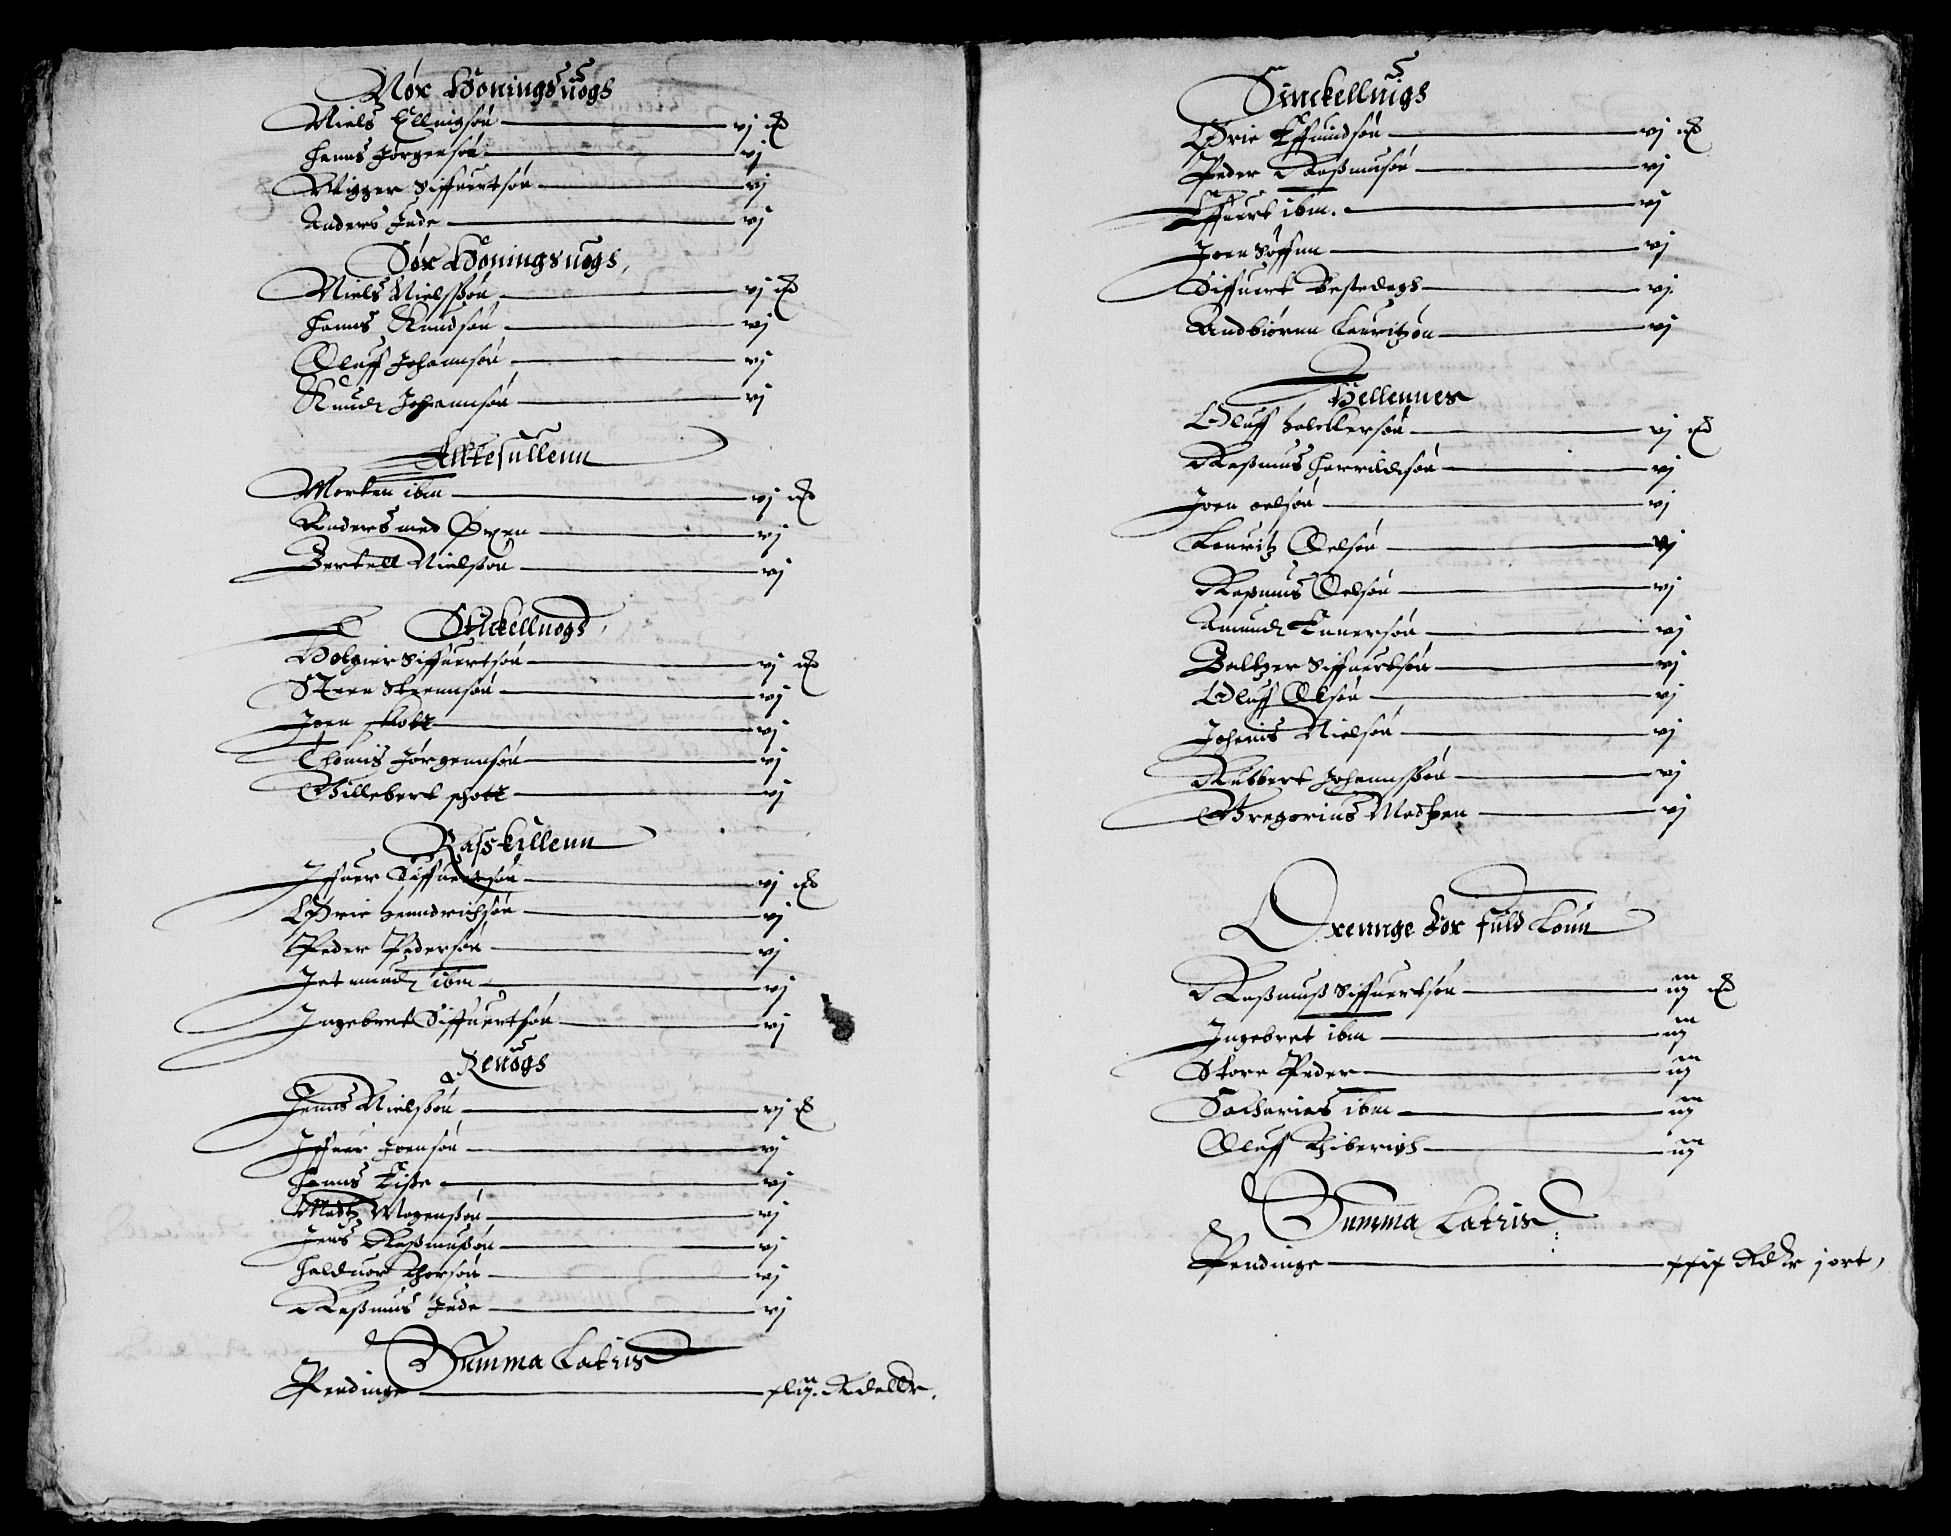 Nør Honingsuogs
Niels Ellnigsøn vj
Hanns Jørgensøn vj
Wigger Siffuertsøn vj
Anders Jude vj
Sør Honingsuogs,
Niels Nielssøn vj
Hanns Knudsøn vj
Oluff Johannsøn vj
Knud Johannsøn vj
Alktesullenn
Morten ibm vj
Anders med Øxen vj
Bertell Nielssøn vj
Stickelluogs,
Holgier Siffuertsøn vj
Steen Steennsøn vj
Joen Skott vj
Thomis Jørgennsøn vj
Gillebert schott vj
Kasskillenn
Iffuer Siffuertsøn vj
Ørie Henndrichsøn vj
Peder Pedersøn vj
Jetmund ibm vj
Ingebret Siffuertsøn vj
Renogs
Jenns Nielssøn vj
Iffuer Joensøn vj
Hanns Tiße vj
Madtz Mogenssøn vj
Jens Raßmußøn vj
Halduor Thorsøn vj
Raßmus Jude vj
Summa Latris
Pendinge
Sinckelluigs
Ørie Effuindsøn vj
Peder Raßmusøn vj
Effuert ibm. vj
Joen Søffrn vj
Siffuert Bestedags vj
Andbiørnn Lauritzøn vj
Hellennes
Oluff Holckersøn vj
Raßmus Harrildsøn vj
Joen oelsøn vj
Lauritz Oelsøn vj
Rasmus Oelsøn vj
Amund Tunersøn vj
Baltzer Siffuertsøn vj
Oluff Olsøn vj
Johanis Nielsøn vj
Rubbert Johannssøn vj
Gregorius Madtzen vj
Oxennge for fuld Lønn
Raßmuß Siffuertsøn iij
Ingebret ibm iij
Store Peder iij
Sacharias ibm iij
Oluff Biberigh iij
Summa Latris
Pendinge xxix Rdlr j ort,